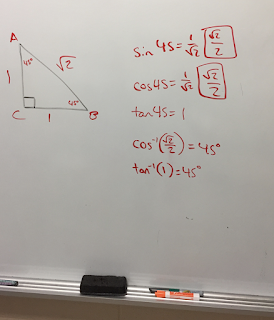 A
45°
√2
1
45°
C
1
B
sin 45 = 1/√2 √2/2
cos 45 = 1/√2 √2/2
tan 45 = 1
cos⁻¹(√2/2) = 45°
tan⁻¹(1) = 45°